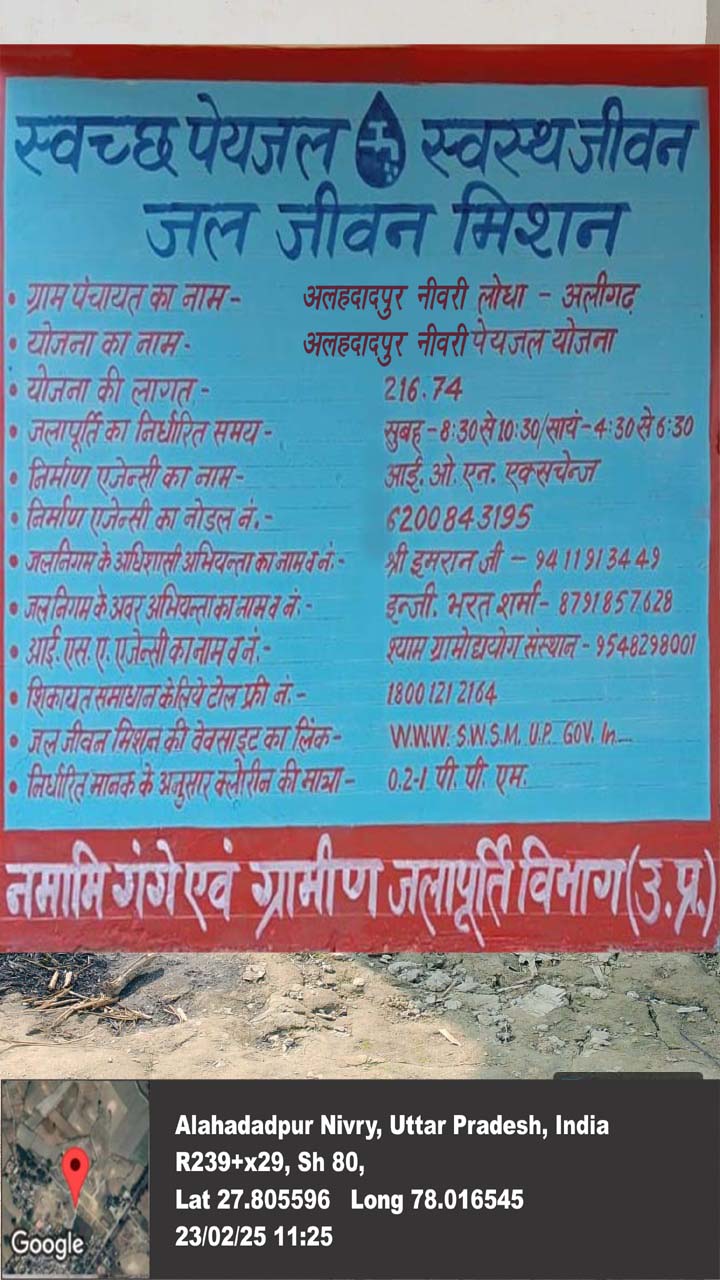 स्वच्छ पेयजल स्वस्थ जीवन
जल जीवन मिशन
• ग्राम पंचायत का नाम - अलहदादपुर नीवरी लोधा - अलीगढ़
• योजना का नाम - अलहदादपुर नीवरी पेयजल योजना
• योजना की लागत - 216.74
• जलापूर्ति का निर्धारित समय - सुबह - 8:30 से 10:30/सायं - 4:30 से 6:30
• निर्माण एजेन्सी का नाम - आई. ओ. एन. एक्सचेन्ज
• निर्माण एजेन्सी का नोडल नं. - 6200843195
• जलनिगम के अधिशासी अभियन्ता का नाम व नं. - श्री इमरान जी - 9411913449
• जलनिगम के अवर अभियन्ता का नाम व नं. - इन्जी. भरत शर्मा - 8791857628
• आई. एस. ए. एजेन्सी का नाम व नं. - श्याम ग्रामोद्योग संस्थान - 9548298001
• शिकायत समाधान के लिये टोल फ्री नं. - 1800 121 2164
• जल जीवन मिशन की वेवसाइट का लिंक - W.W.W. S.W.S.M. U.P. GOV. In
• निर्धारित मानक के अनुसार क्लोरीन की मात्रा - 0.2-1 पी. पी. एम.
नमामि गंगे एवं ग्रामीण जलापूर्ति विभाग (उ.प्र.)
Alahadadpur Nivry, Uttar Pradesh, India
R239+x29, Sh 80,
Lat 27.805596 Long 78.016545
23/02/25 11:25
Google